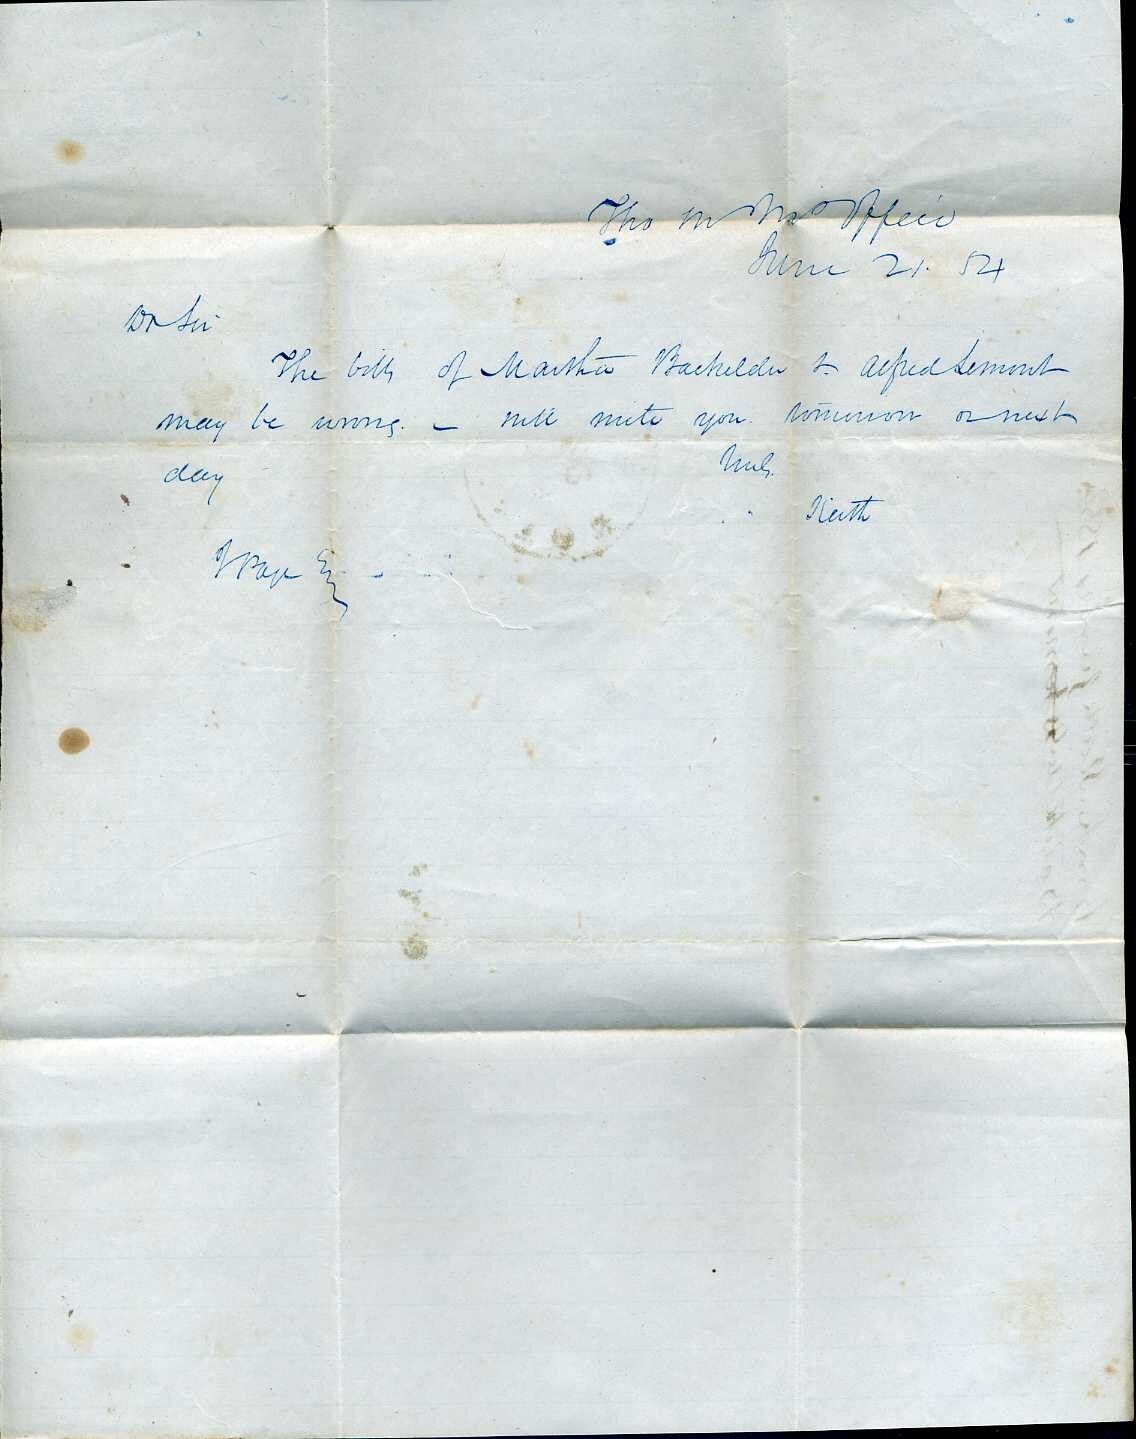 Tho M Ins Office
June 21. 54
Dr Sir
The bills of Martha Bachelder & Alfred Lemont
may be wrong. – will write you tomorrow or next
day
Keith
J Page Esq